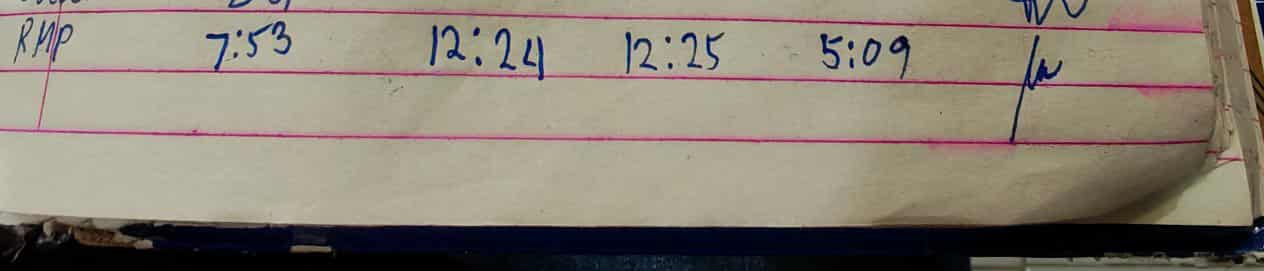 RMP 7:53 12:24 12:25 5:09